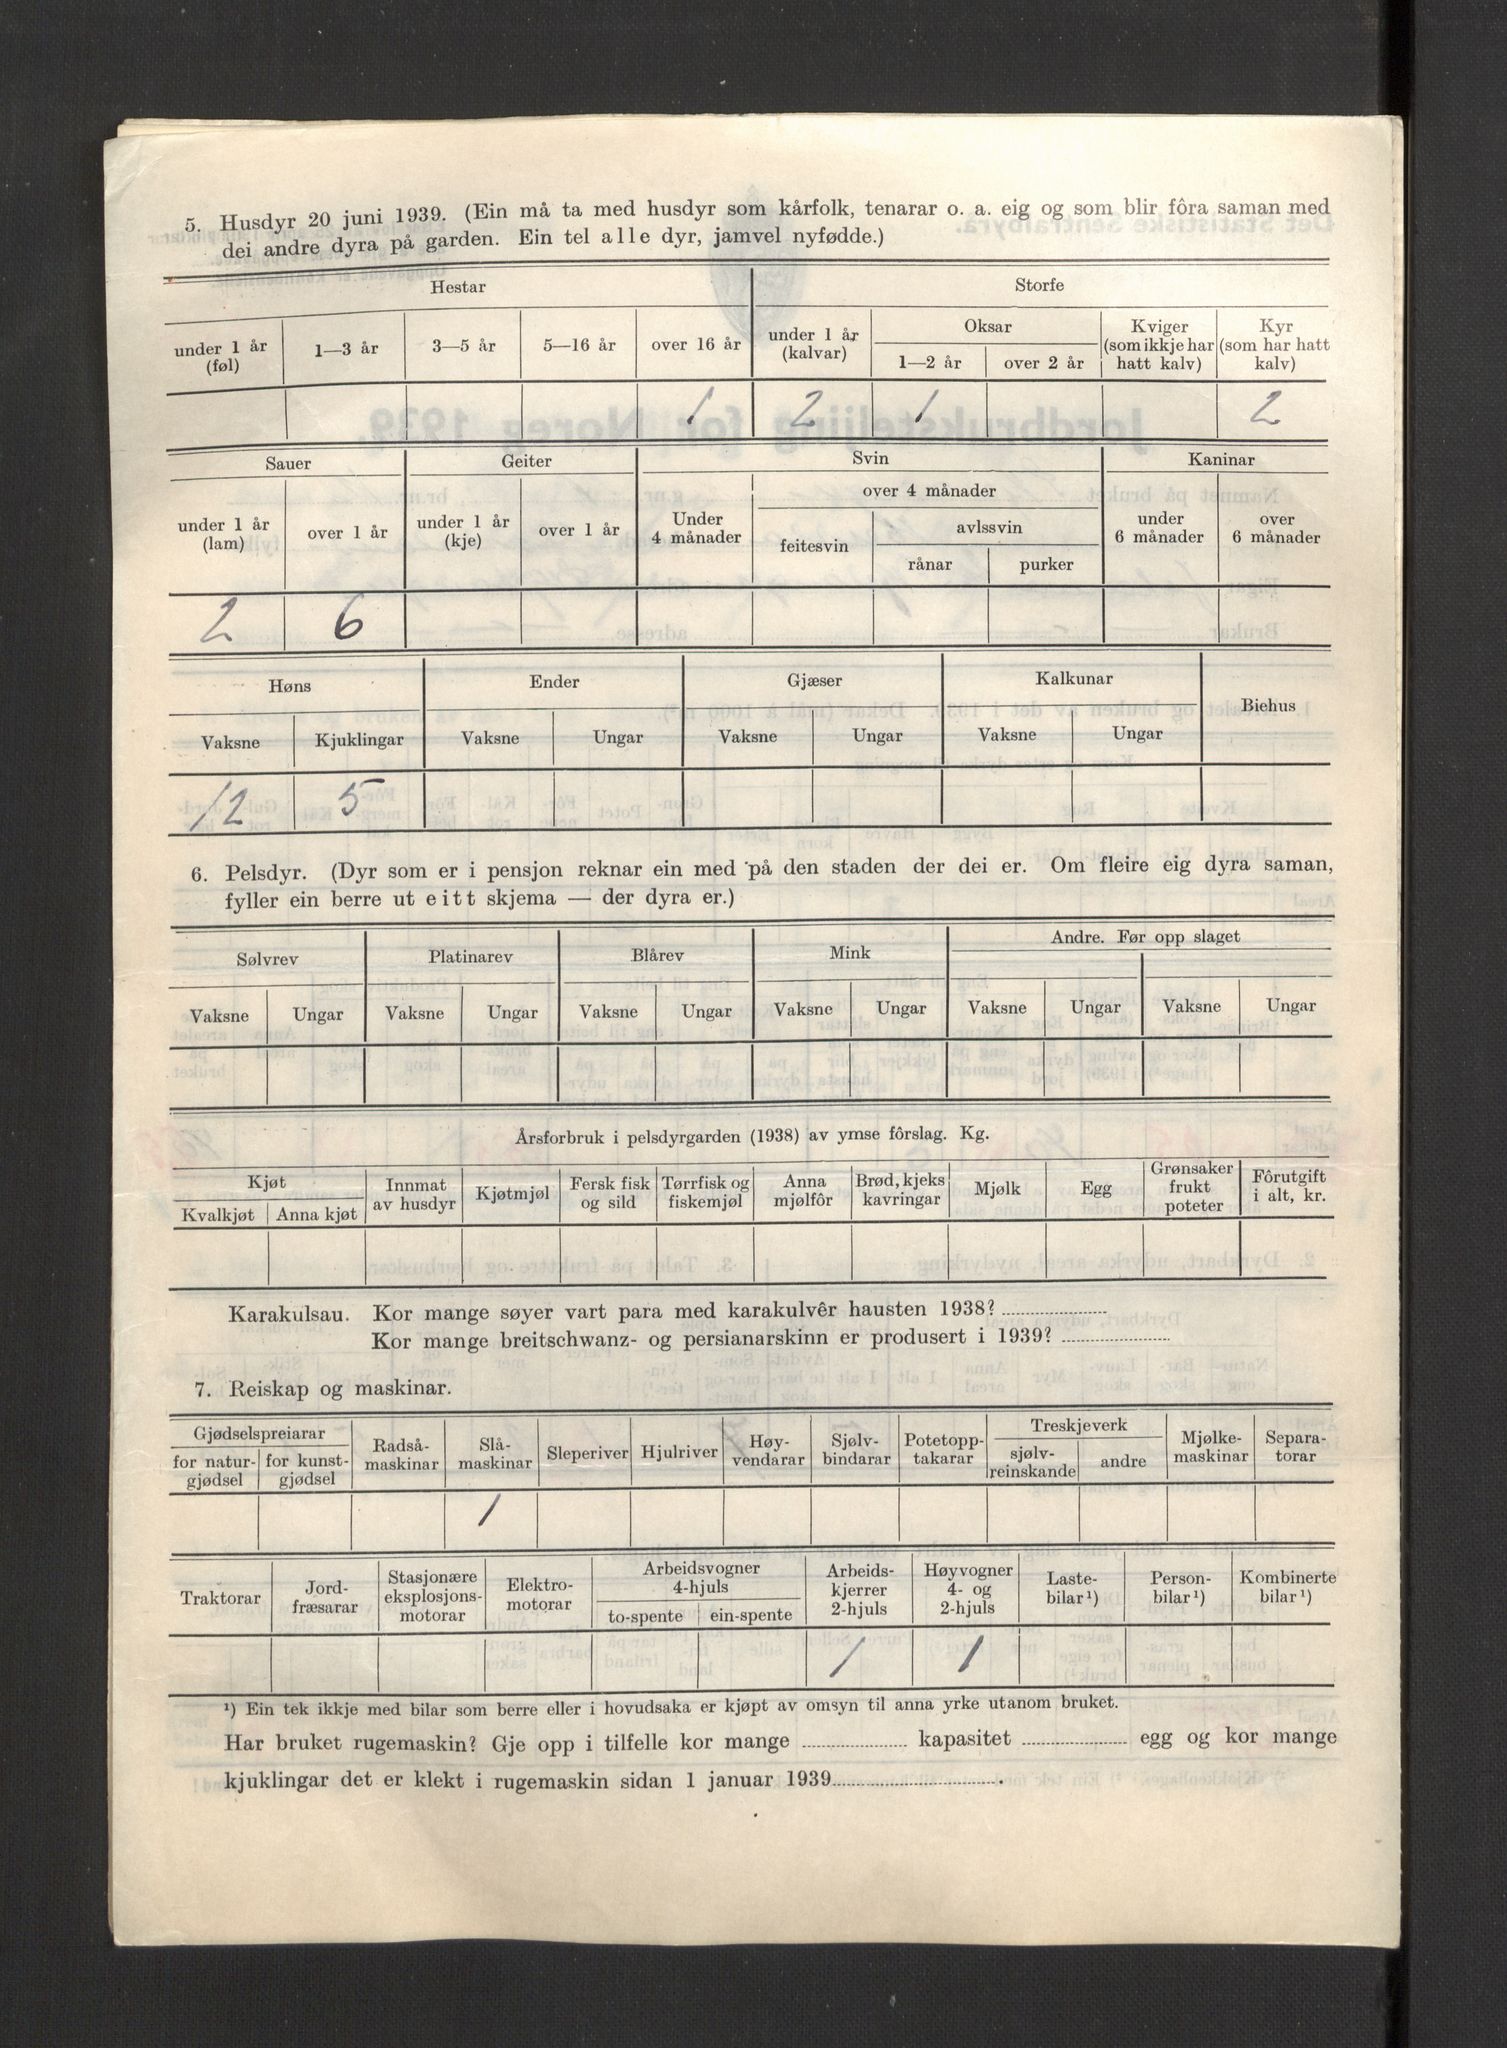 5. Husdyr 20 juni 1939. (Ein må ta med husdyr som kårfolk, tenarar o. a. eig og som blir fôra saman med
dei andre dyra på garden. Ein tel alle dyr, jamvel nyfødde.)
Hestar Storfe
under 1 år (føl) 1—3 år 3—5 år 5—16 år over 16 år under 1 år (kalvar) Oksar 1—2 år over 2 år Kviger (som ikkje har hatt kalv) Kyr (som har hatt kalv)
1 2 1 2
Sauer Geiter Svin Kaninar
under 1 år (lam) over 1 år under 1 år (kje) over 1 år Under 4 månader over 4 månader feitesvin avlssvin rånar purker under 6 månader over 6 månader
2 6
Høns Ender Gjæser Kalkunar Biehus
Vaksne Kjuklingar Vaksne Ungar Vaksne Ungar Vaksne Ungar
12 5
6. Pelsdyr. (Dyr som er i pensjon reknar ein med på den staden der dei er. Om fleire eig dyra saman,
fyller ein berre ut eitt skjema — der dyra er.)
Sølvrev Platinarev Blårev Mink Andre. Før opp slaget
Vaksne Ungar Vaksne Ungar Vaksne Ungar Vaksne Ungar Vaksne Ungar Vaksne Ungar
Årsforbruk i pelsdyrgarden (1938) av ymse fôrslag. Kg.
Kjøt Kvalkjøt Anna kjøt Innmat av husdyr Kjøtmjøl Fersk fisk og sild Tørrfisk og fiskemjøl Anna mjølfôr Brød, kjeks kavringar Mjølk Egg Grønsaker frukt poteter Fôrutgift i alt, kr.
Karakulsau. Kor mange søyer vart para med karakulvêr hausten 1938?
Kor mange breitschwanz- og persianarskinn er produsert i 1939?
7. Reiskap og maskinar.
Gjødselspreiarar for natur-gjødsel for kunst-gjødsel Radså-maskinar Slå-maskinar Sleperiver Hjulriver Høy-vendarar Sjølv-bindarar Potetopp-takarar Treskjeverk sjølv-reinskande andre Mjølke-maskinar Separa-torar
1
Traktorar Jord-fræsarar Stasjonære eksplosjons-motorar Elektro-motorar Arbeidsvogner 4-hjuls to-spente ein-spente Arbeids-kjerrer 2-hjuls Høyvogner 4- og 2-hjuls Laste-bilar ¹) Person-bilar ¹) Kombinerte bilar ¹)
1 1
¹) Ein tek ikkje med bilar som berre eller i hovudsaka er kjøpt av omsyn til anna yrke utanom bruket.
Har bruket rugemaskin? Gje opp i tilfelle kor mange kapasitet egg og kor mange
kjuklingar det er klekt i rugemaskin sidan 1 januar 1939 .